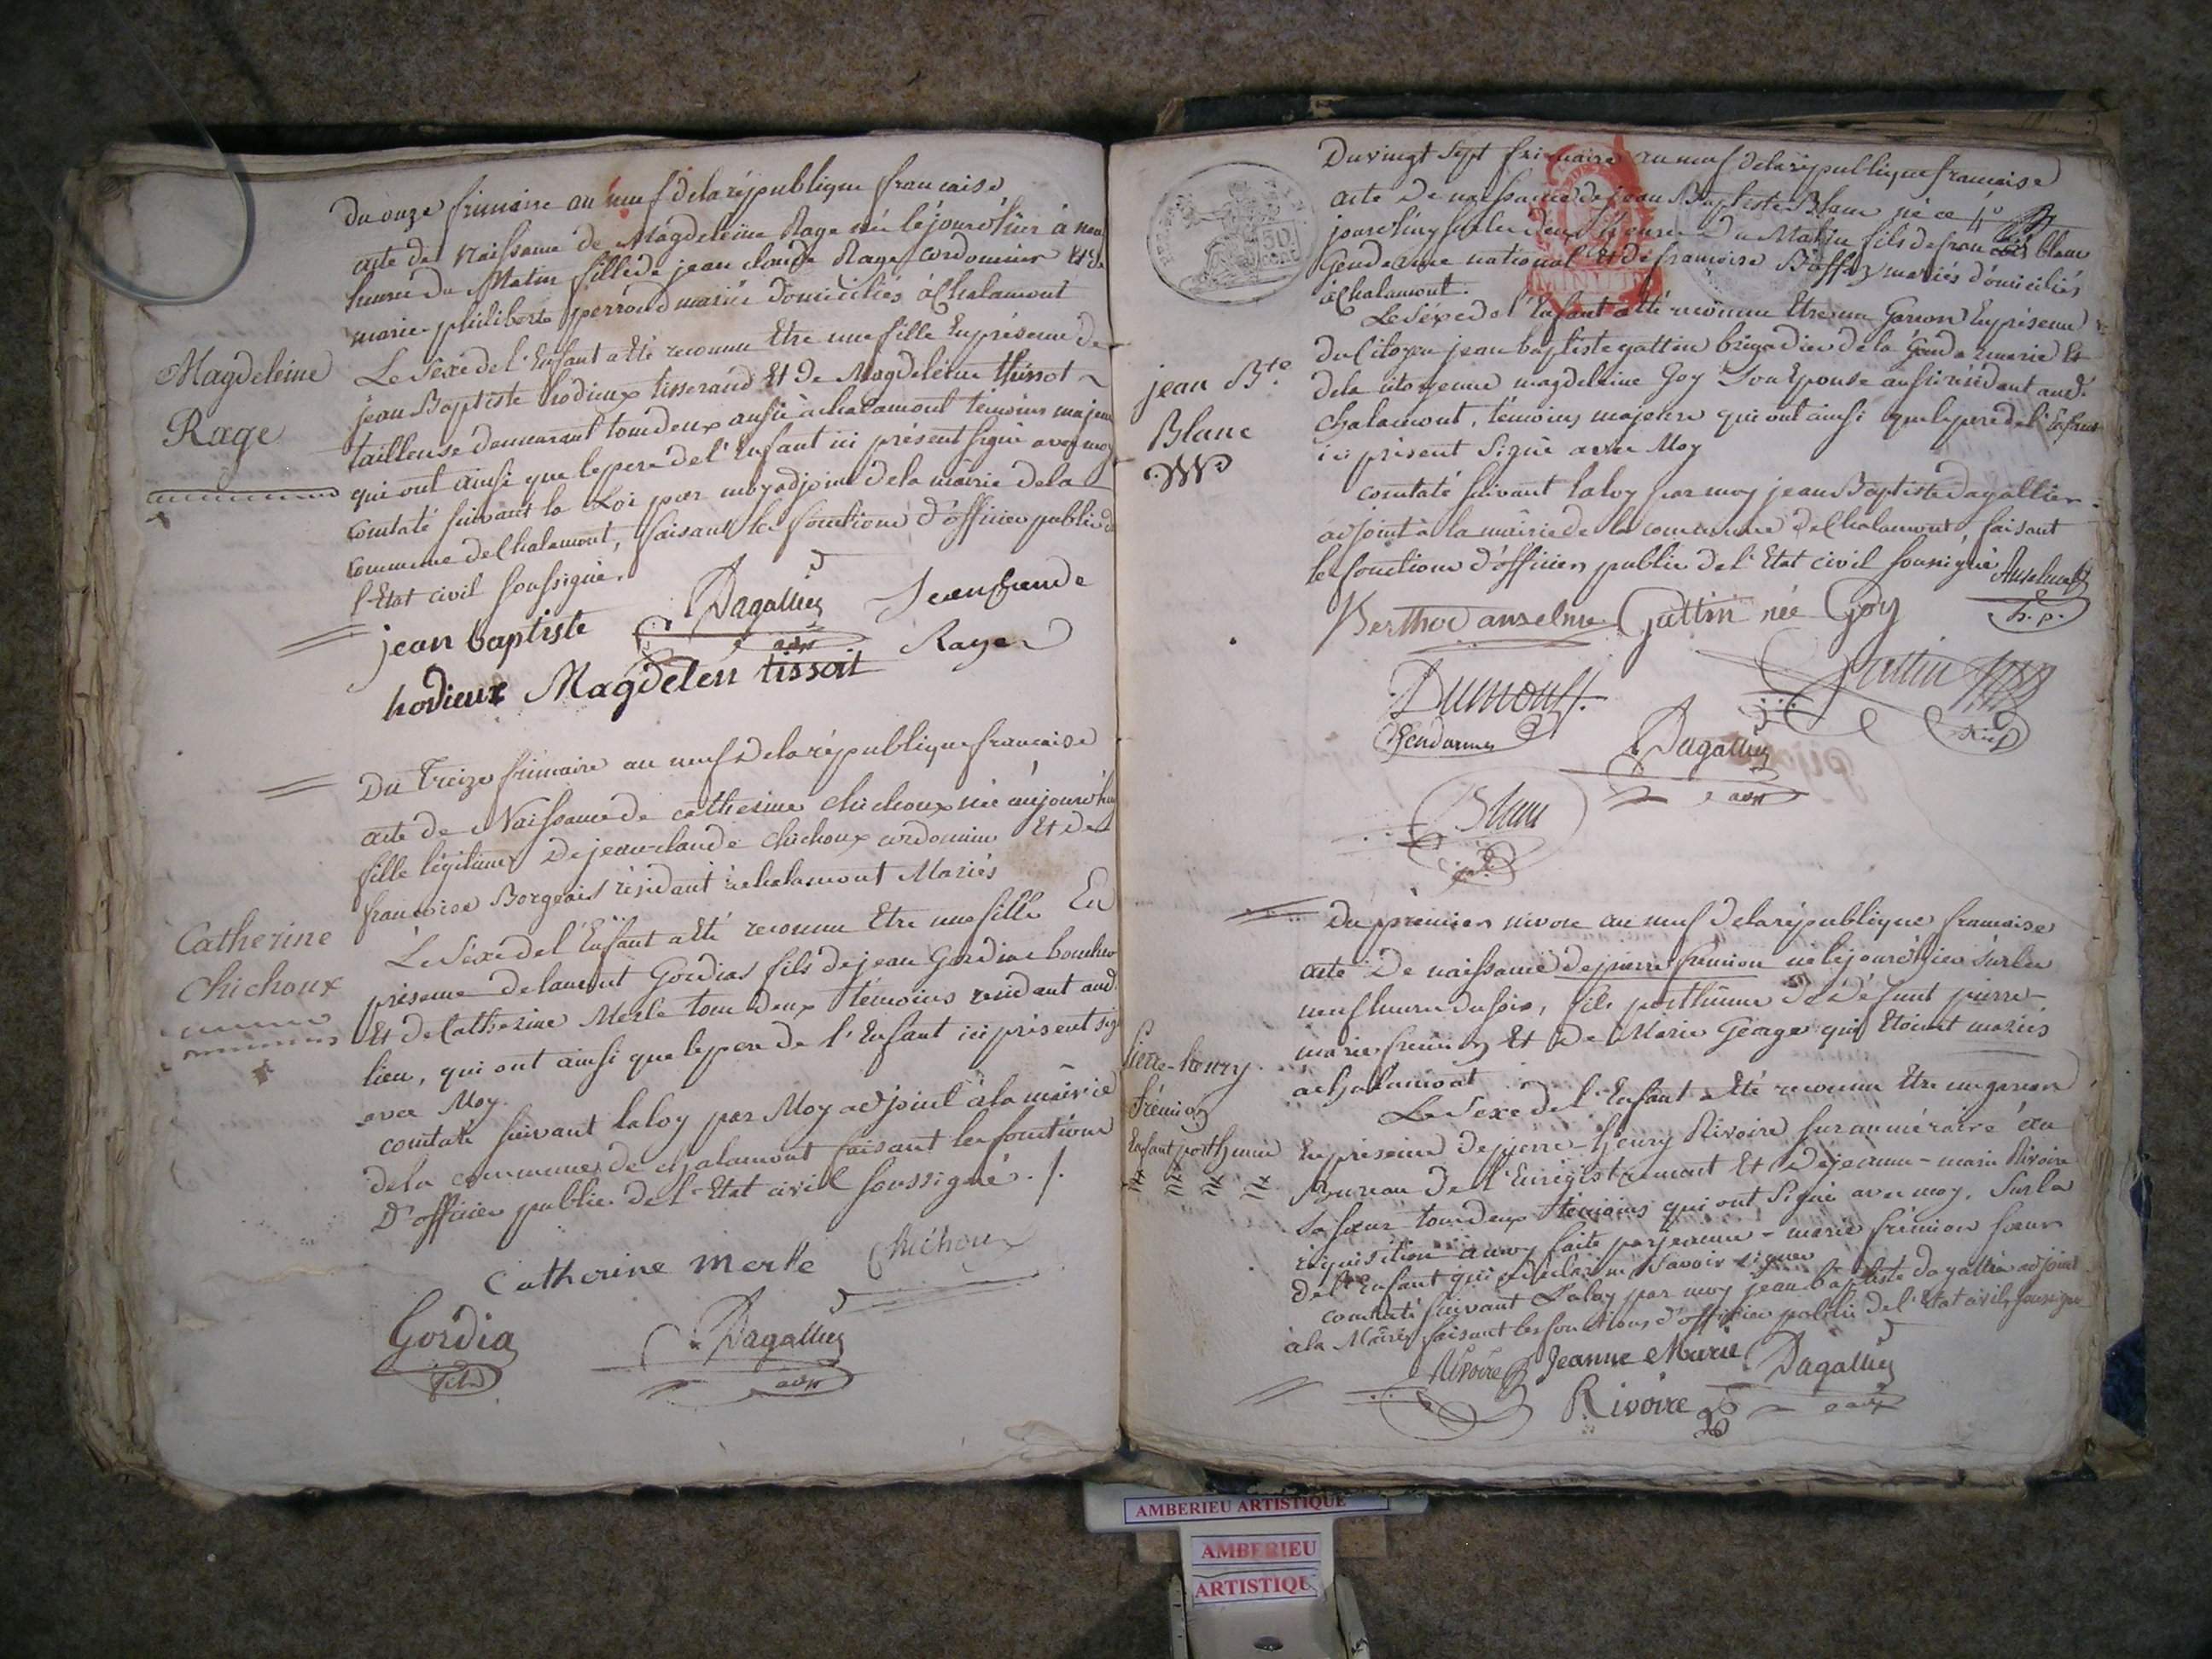 du onze frimaire an neuf de la république francaise
acte de Naissance de Magdeleine Rage née lejourdhüi à neuf
heures du Matin fille de jean claude Rage cordonnier Et de
marie philiberte perroud mariés domiciliés à Chalamont
Magdeleine
Rage
Le Sexe de l'Enfant a Eté reconnu Etre une fille En présence de
jean Baptiste hodieux tisserand Et de Magdeleine thissot
tailleuse demeurant tous deux aussi à chalamont témoins majeurs
qui ont ainsi que le pere de l'Enfant ici présent signé avec moy
constaté suivant la Loi par moy adjoint de la mairie de la
commune de Chalamont, faisant les fonctions d'officier public de
l'Etat civil soussigné.
jean baptiste
hodieux
Dagallier
adjt
Jean Claude
Rage
Magdelen tissoit
Du Treize frimaire an neuf de la république francaise
acte de Naissance de catherine chichoux née aujourd'hui
fille légitime De jean claude chichoux cordonnier Et de
francoise Borgeais résidant à chalamont Mariés
Catherine
Chichoux
Le Sexe de l'Enfant a Eté reconnu Etre une fille En
présence de laurent Gordias fils de jean Gordias
Et de Catherine Merle tous deux témoins résidant aud.
lieu, qui ont ainsi que le pere de l'Enfant ici présent signé
avec Moy.
constaté suivant la loy par Moy adjoint à la mairie
de la commune de chalamont faisant les fonctions
D'officier public de l'Etat civil soussigné ./.
Catherine merle
Chichoux
Gordia
fils
Dagallier
adjt
Du vingt sept frimaire an neuf de la république francaise
acte de naissance de jean Baptiste Blanc né ce
jourdhuy sur les deux heures Du Matin fils de francois blanc
Gendarme national Et de francoise mariés domiciliés
à Chalamont.
jean Bte
Blanc
Le Sexe de l'Enfant a Eté reconnu Etre un Garcon En présence
du Citoyen jean baptiste gattin brigadier de la Gendarmerie Et
de la citoyenne magdeleine Goy Son Epouse aussi résidant aud.
Chalamont, témoins majeurs qui ont ainsi que le pere de l'Enfant
ici présent Signé avec Moy
constaté suivant la loy par moy jean Baptiste Dagallier
adjoint à la mairie de la commune de Chalamont faisant
les fonctions d'officier public de l'Etat civil soussigné
Anselme
Berthod anselme
Gattin née Goy
Dumont
Gendarme
Gattin
Dagallier
adjt
Blanc
Du premier nivose an neuf de la république francaise
acte De naissance de pierre frémion né le jour d'hier sur les
neuf heures du soir, fils posthume de Défunt pierre
marie frémion Et De Marie George qui Etoient mariés
à chalamont
pierre-henry
frémion
Enfant posthume
Le Sexe de l'Enfant a Eté reconnu Etre un garcon
En présence de pierre henry Rivoire surnuméraire au
Bureau De l'Enregistrement Et De jeanne-marie Rivoire
sa soeur tous deux témoins qui ont Signé avec moy. Sur la
réquisition à moy faite par jeanne-marie frémion soeur
de l'Enfant qui a déclaré ne savoir signer
constaté suivant La loy par moy jean baptiste dagallier adjoint
à la Mairie faisant les fonctions d'officier public de l'Etat civil soussigné
Rivoire
Jeanne Marie
Rivoire
Dagallier
adjt
AMBERIEU ARTISTIQUE
AMBERIEU
ARTISTIQU